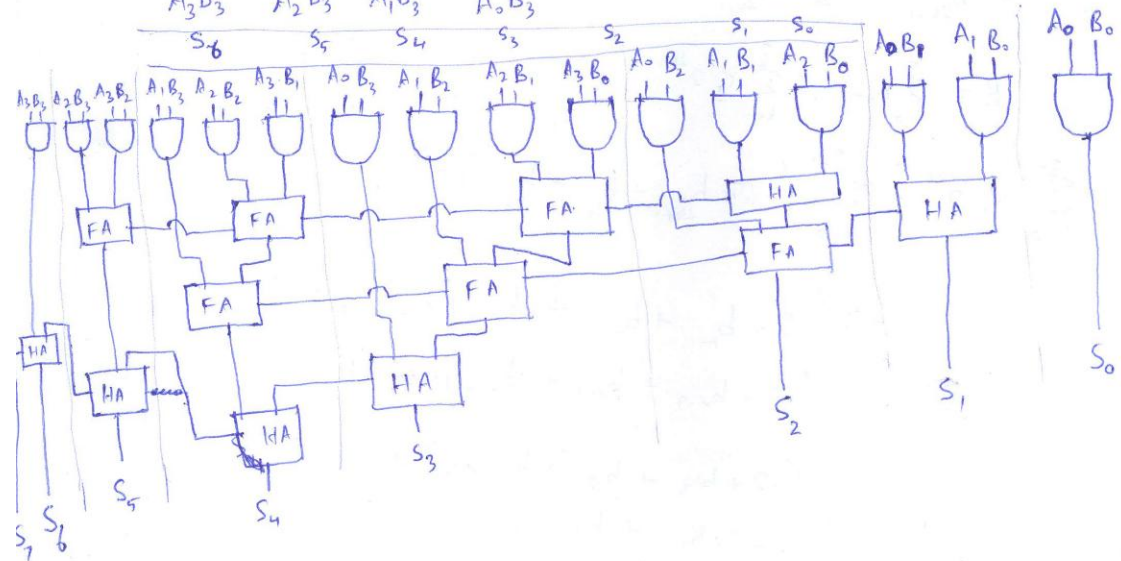 A3B3 A2B3 A1B3 A0B3
S6 S5 S4 S3 S2 S1 S0
A3B3 A2B3 A3B2 A1B3 A2B2 A3B1 A0B3 A1B2 A2B1 A3B0 A0B2 A1B1 A2B0 A0B1 A1B0 A0B0
HA
FA FA FA HA
FA
FA FA
HA
HA HA
HA
S0
S1
S2
S3
S4
S5
S6
S7